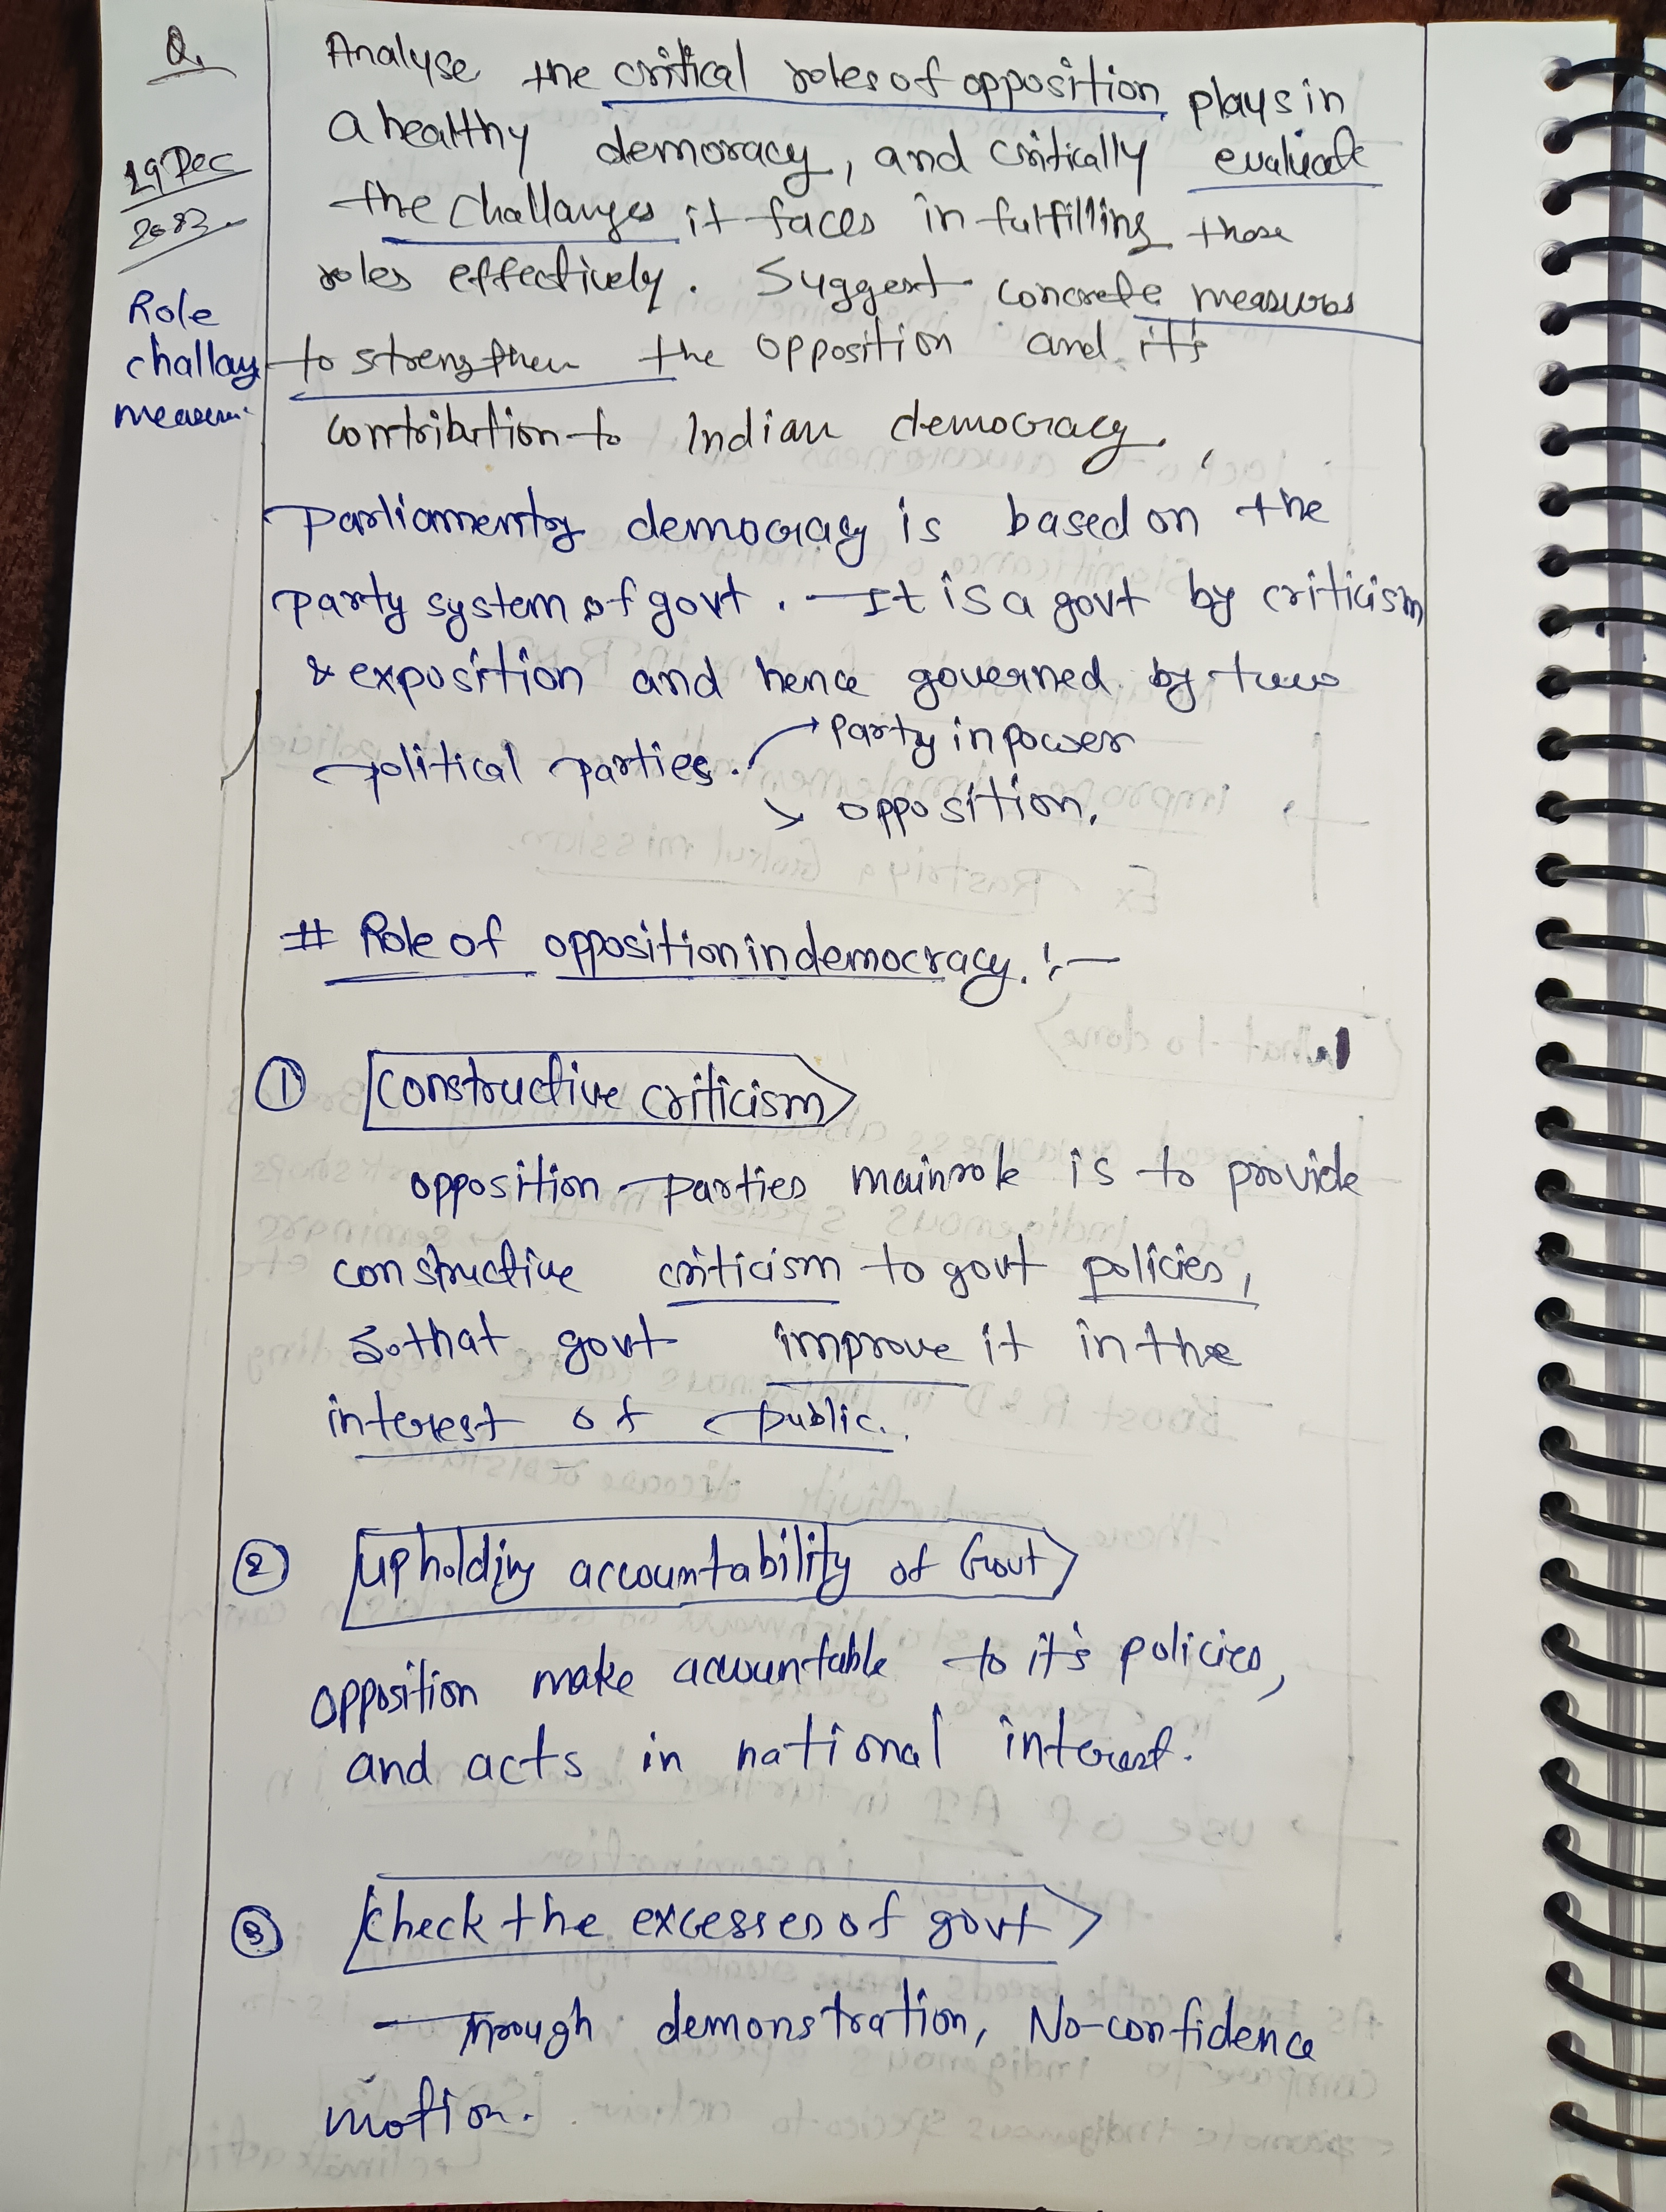 Q.
Analyse the critical roles of opposition plays in
a healthy demoracy, and critically evaluate
19 Dec
2023
the challanges it faces in fulfilling those
roles effectively. Suggest concrete measures
Role
challang
measure
to strengthen the opposition and it's
contribution to Indian democracy.
Parliamentry democracy is based on the
party system of govt. It is a govt by criticism
& exposition and hence governed by two
political parties. → Party in power
↘ opposition.
# Role of opposition in democracy. :-
① Constructive criticism
opposition parties main role is to provide
constructive criticism to govt policies,
so that govt improve it in the
interest of public.
② upholding accountability of Govt
opposition make accountable to it's policies,
and acts in national interest.
③ check the excesses of govt
— Through demonstration, No-confidence
motion.